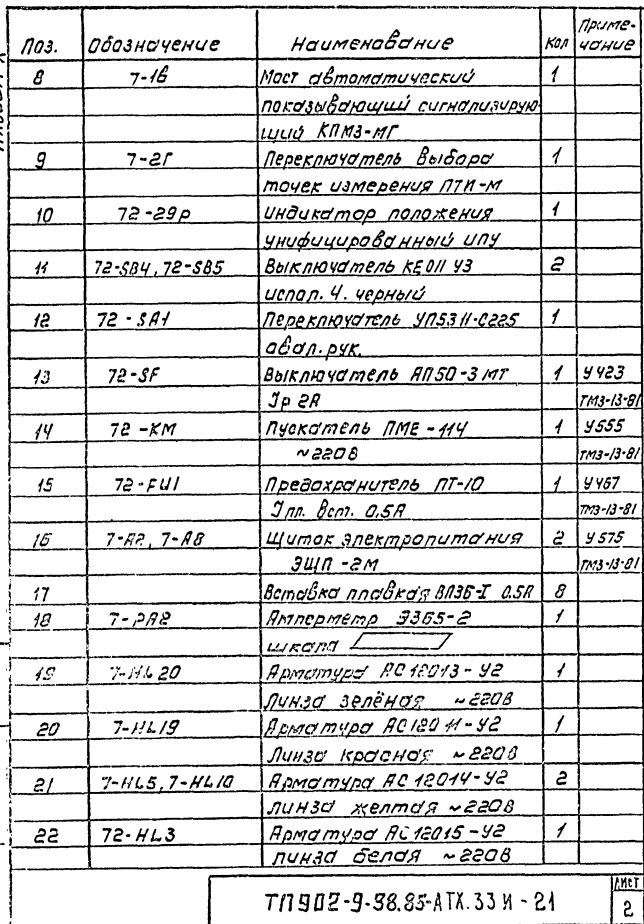 Поз. Обозначение Наименование Кол Приме-
чание
8 7-1б Мост автоматический 1
показывающий сигнализирую-
щий КПМ3-МГ
9 7-2Г Переключатель выбора 1
точек измерения ПТИ-М
10 72-29р Индикатор положения 1
унифицированный ИПУ
11 72-SB4, 72-SB5 Выключатель КЕ011 У3 2
испол. 4. черный
12 72-SA1 Переключатель УП5311-С225 1
овал. рук.
13 72-SF Выключатель АП50-3МТ 1 У423
Jр 2А ТМ3-13-81
14 72-КМ Пускатель ПМЕ-114 1 У555
~220В ТМ3-13-81
15 72-FU1 Предохранитель ПТ-10 1 У467
Jпл. вст. 0.5А ТМ3-13-81
16 7-А2, 7-А8 Щиток электропитания 2 У575
ЭЩП-2М ТМ3-13-81
17 Вставка плавкая ВП3б-I 0.5А 8
18 7-РА2 Амперметр Э365-2 1
шкала
19 7-HL20 Арматура АС12013-У2 1
Линза зелёная ~220В
20 7-HL19 Арматура АС12011-У2 1
Линза красная ~220В
21 7-HL5, 7-HL10 Арматура АС12014-У2 2
линза желтая ~220В
22 72-HL3 Арматура АС12015-У2 1
линза белая ~220В
ТП902-9-38.85-АТХ.33И-21
Лист
2